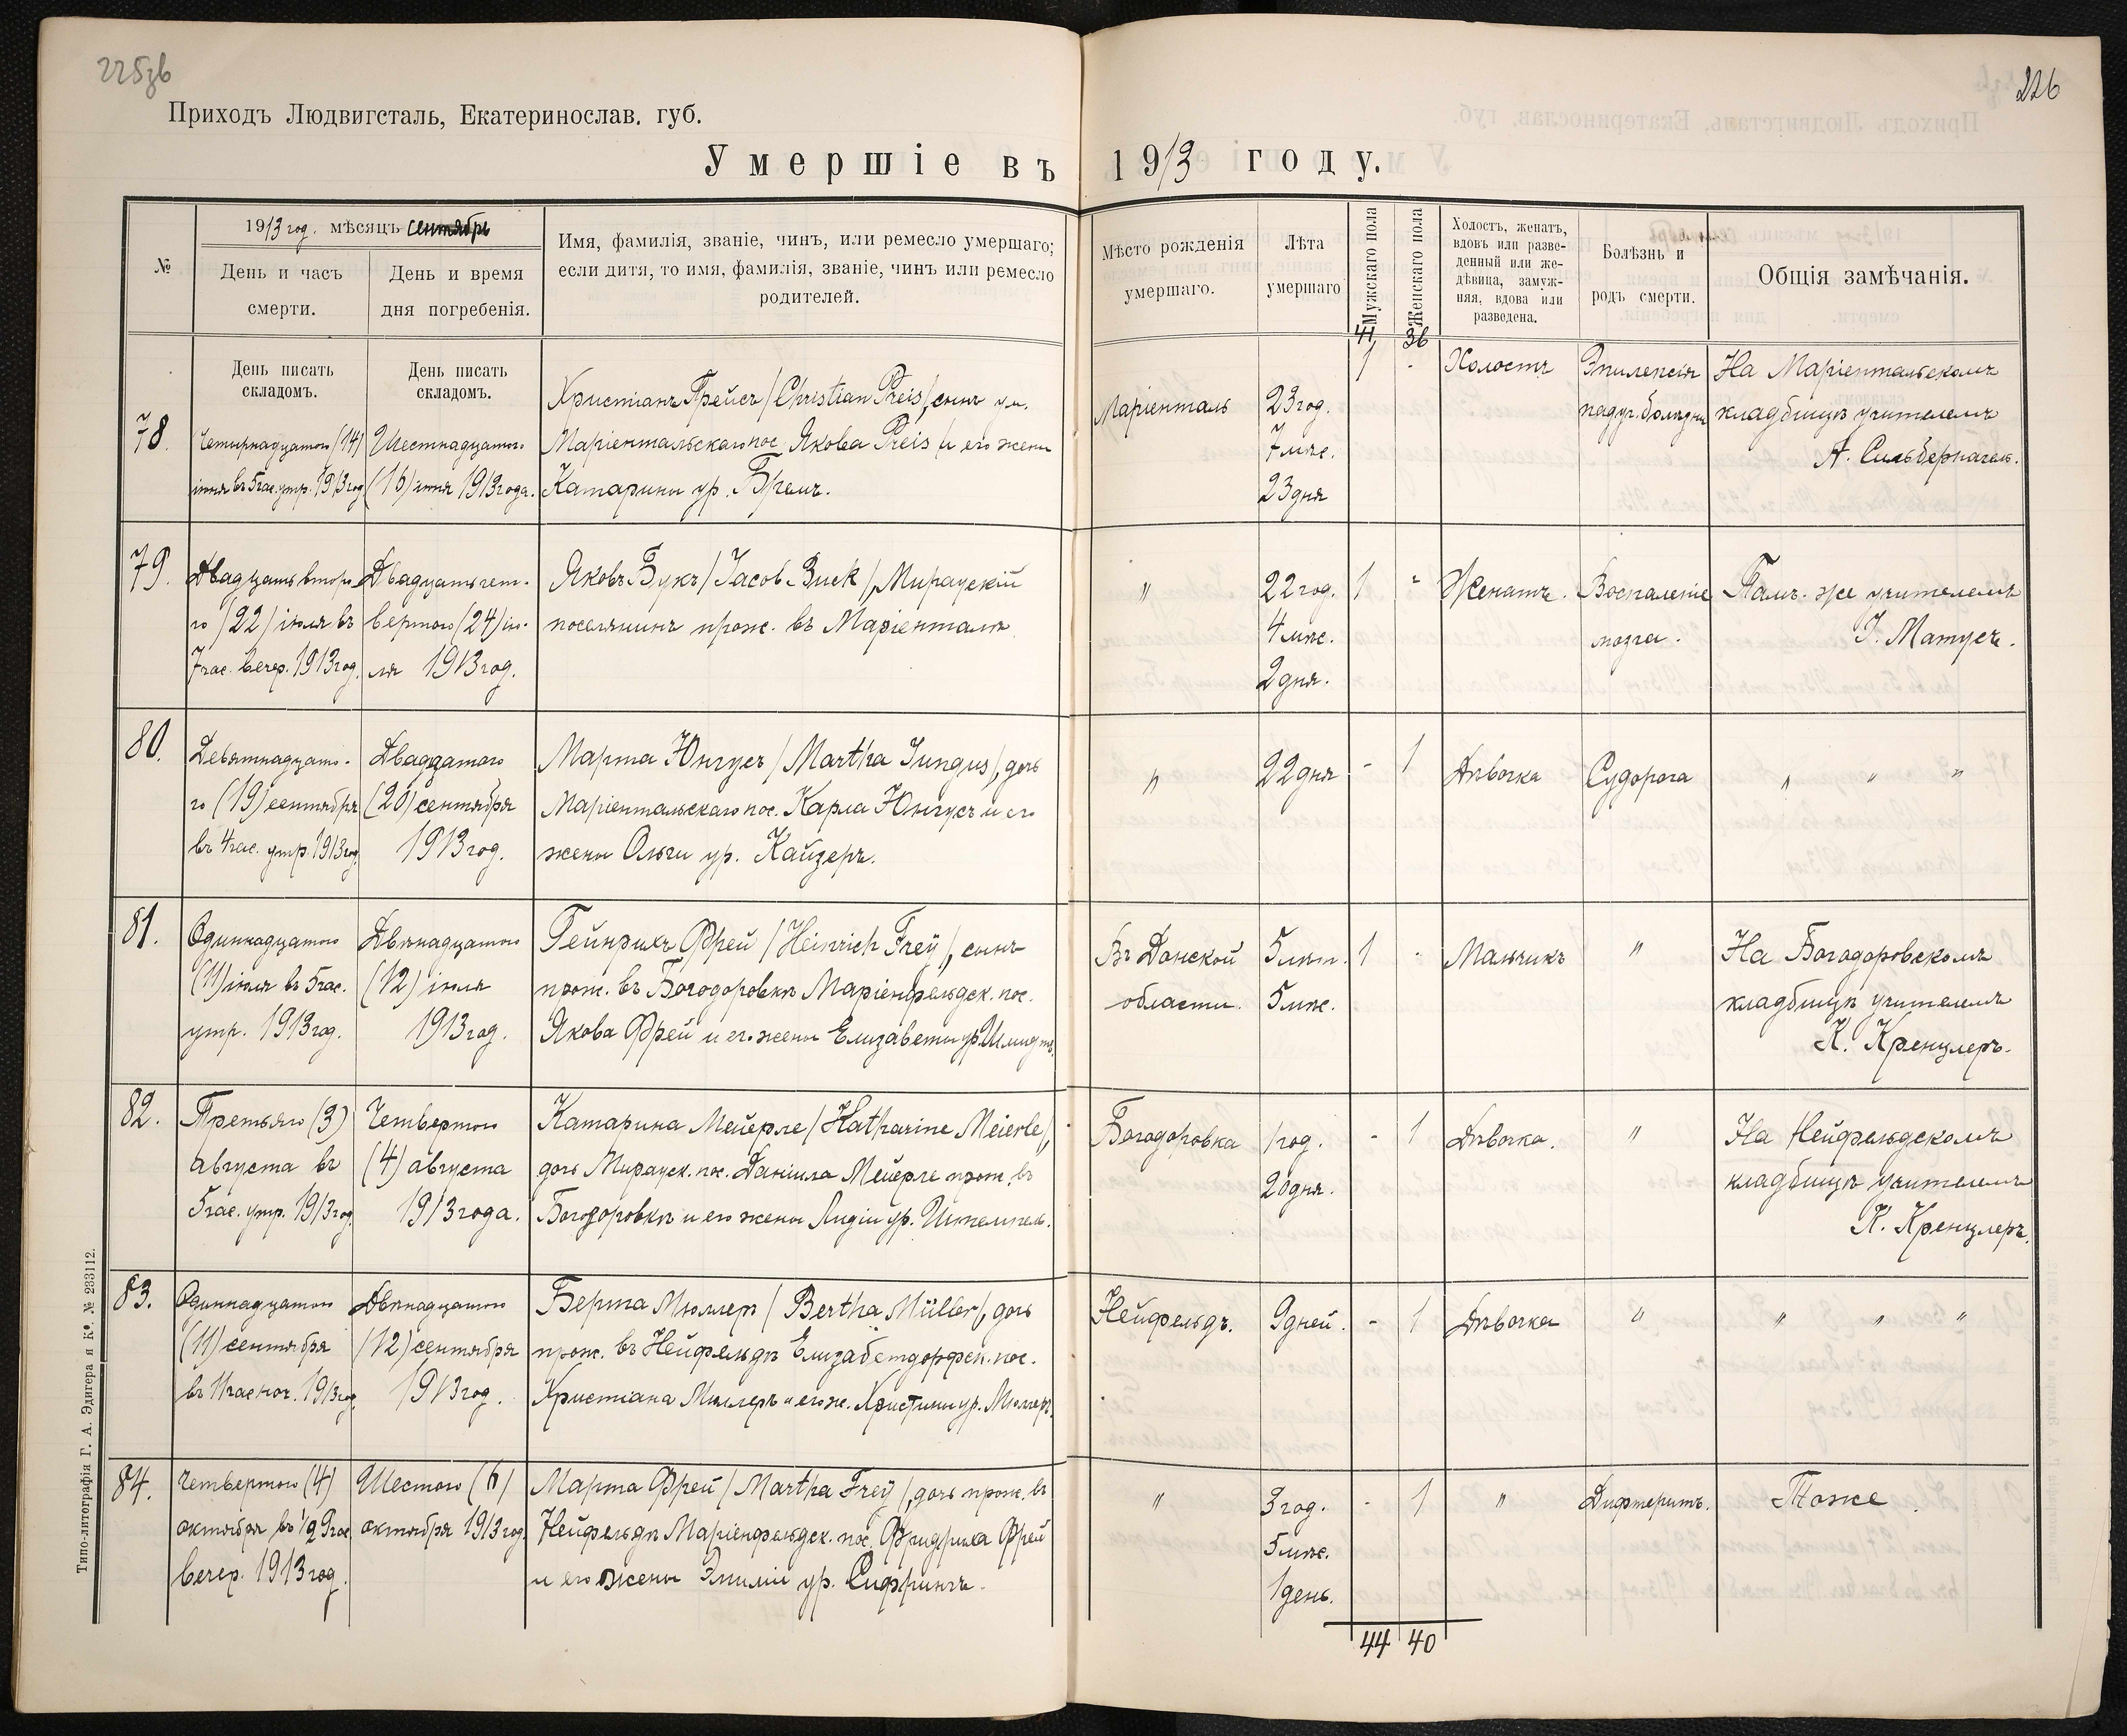 225зв
226
Приходъ Людвигсталь, Екатеринослав. губ.
Умершіе въ 1913 году.
№
1913 год. мѣсяцъ сентябрь
День и часъ
смерти.
День и время
дня погребенія.
Имя, фамилія, званіе, чинъ, или ремесло умершаго;
если дитя, то имя, фамилія, званіе, чинъ или ремесло
родителей.
Мѣсто рожденія
умершаго.
Лѣта
умершаго
Мужскаго пола
Женскаго пола
Холостъ, женатъ,
вдовъ или разве-
денный или же-
дѣвица, замуж-
няя, вдова или
разведена.
Болѣзнь и
родъ смерти.
Общія замѣчанія.
41 36
День писать
складомъ.
День писать
складомъ.
78.
Четырнадцатого (14)
іюня въ 5 час. утр. 1913 год
Шестнадцатого
(16) іюня 1913 года.
Христіанъ Прейсъ / Christian Preis /, сынъ ум.
Маріентальскаго пос. Якова Preis и его жены
Катарины ур.
Маріенталь
23 год.
7 мѣс.
23 дня
1 -
Холостъ
Эпилепсія
падуч. болѣзнь
На Маріентальскомъ
кладбищѣ учителемъ
А. Сильбернагель.
79.
Двадцать второ-
го / 22 / іюля въ
7 час. вечер. 1913 год.
Двадцать чет-
вертого (24) ію-
ля 1913 год.
Яковъ Букъ / Jacob Buck /, Мирауской
поселянинъ прож. въ Маріенталѣ
"
22 год.
4 мѣс.
2 дня.
1 -
Женатъ.
Воспаленіе
мозга.
Тамъ же учителемъ
І. Матусъ.
80.
Девятнадцато-
го (19) сентября
въ 4 час. утр. 1913 год
Двадцатого
(20) сентября
1913 год.
Марта Юнгусъ / Martha Jungus /, дочь
Маріентальскаго пос. Карла Юнгусъ и его
жены Ольги ур. Кайзеръ.
"
22 дня
- 1
Дѣвочка
Судорога
" " "
81.
Одиннадцатого
(11) іюля въ 5 час.
утр. 1913 год.
Двѣнадцатого
(12) іюля
1913 год.
Гейнрихъ Фрей / Heinrich Freÿ /, сынъ
прож. въ Богодоровкѣ Маріенфельдск. пос.
Якова Фрей и его жены Елизаветы ур. Шмидтъ.
Въ Донской
области.
5 лѣт.
5 мѣс.
1 -
Мальчикъ
"
На Богодоровскомъ
кладбищѣ учителемъ
К. Кренцлеръ.
82.
Третьяго (3)
августа въ
5 час. утр. 1913 год
Четвертого
(4) августа
1913 года.
Катарина Мейерле / Katharine Meierle /,
дочь Мирауск. пос. Даніила Мейерле прож. въ
Богодоровкѣ и его жены Лидіи ур. Штемпель.
Богодоровка
1 год.
20 дня.
- 1
Дѣвочка.
"
На Нейфельдскомъ
кладбищѣ учителемъ
К. Кренцлеръ.
83.
Одиннадцатого
(11) сентября
въ 11 час ноч. 1913 год
Двѣнадцатого
(12) сентября
1913 год.
Берта Мюллеръ / Bertha Müller /, дочь
прож. въ Нейфельдѣ Елизабетдорфск. пос.
Христіана Мюллеръ и его ж. Христины ур. Мюллеръ.
Нейфельдъ.
9 дней.
- 1
Дѣвочка
"
" " "
84.
Четвертого (4)
октября въ 1/2 9 час
вечер. 1913 год.
Шестого (6)
октября 1913 год.
Марта Фрей / Martha Freÿ /, дочь прож. въ
Нейфельдѣ Маріенфельдск. пос. Фридриха Фрей
и его жены Эмиліи ур. Сифрингъ.
"
3 год.
5 мѣс.
1 день.
- 1
"
Дифтеритъ.
Тоже.
44 40
Типо-литографія Г. А. Эдигера и Ко. № 233112.